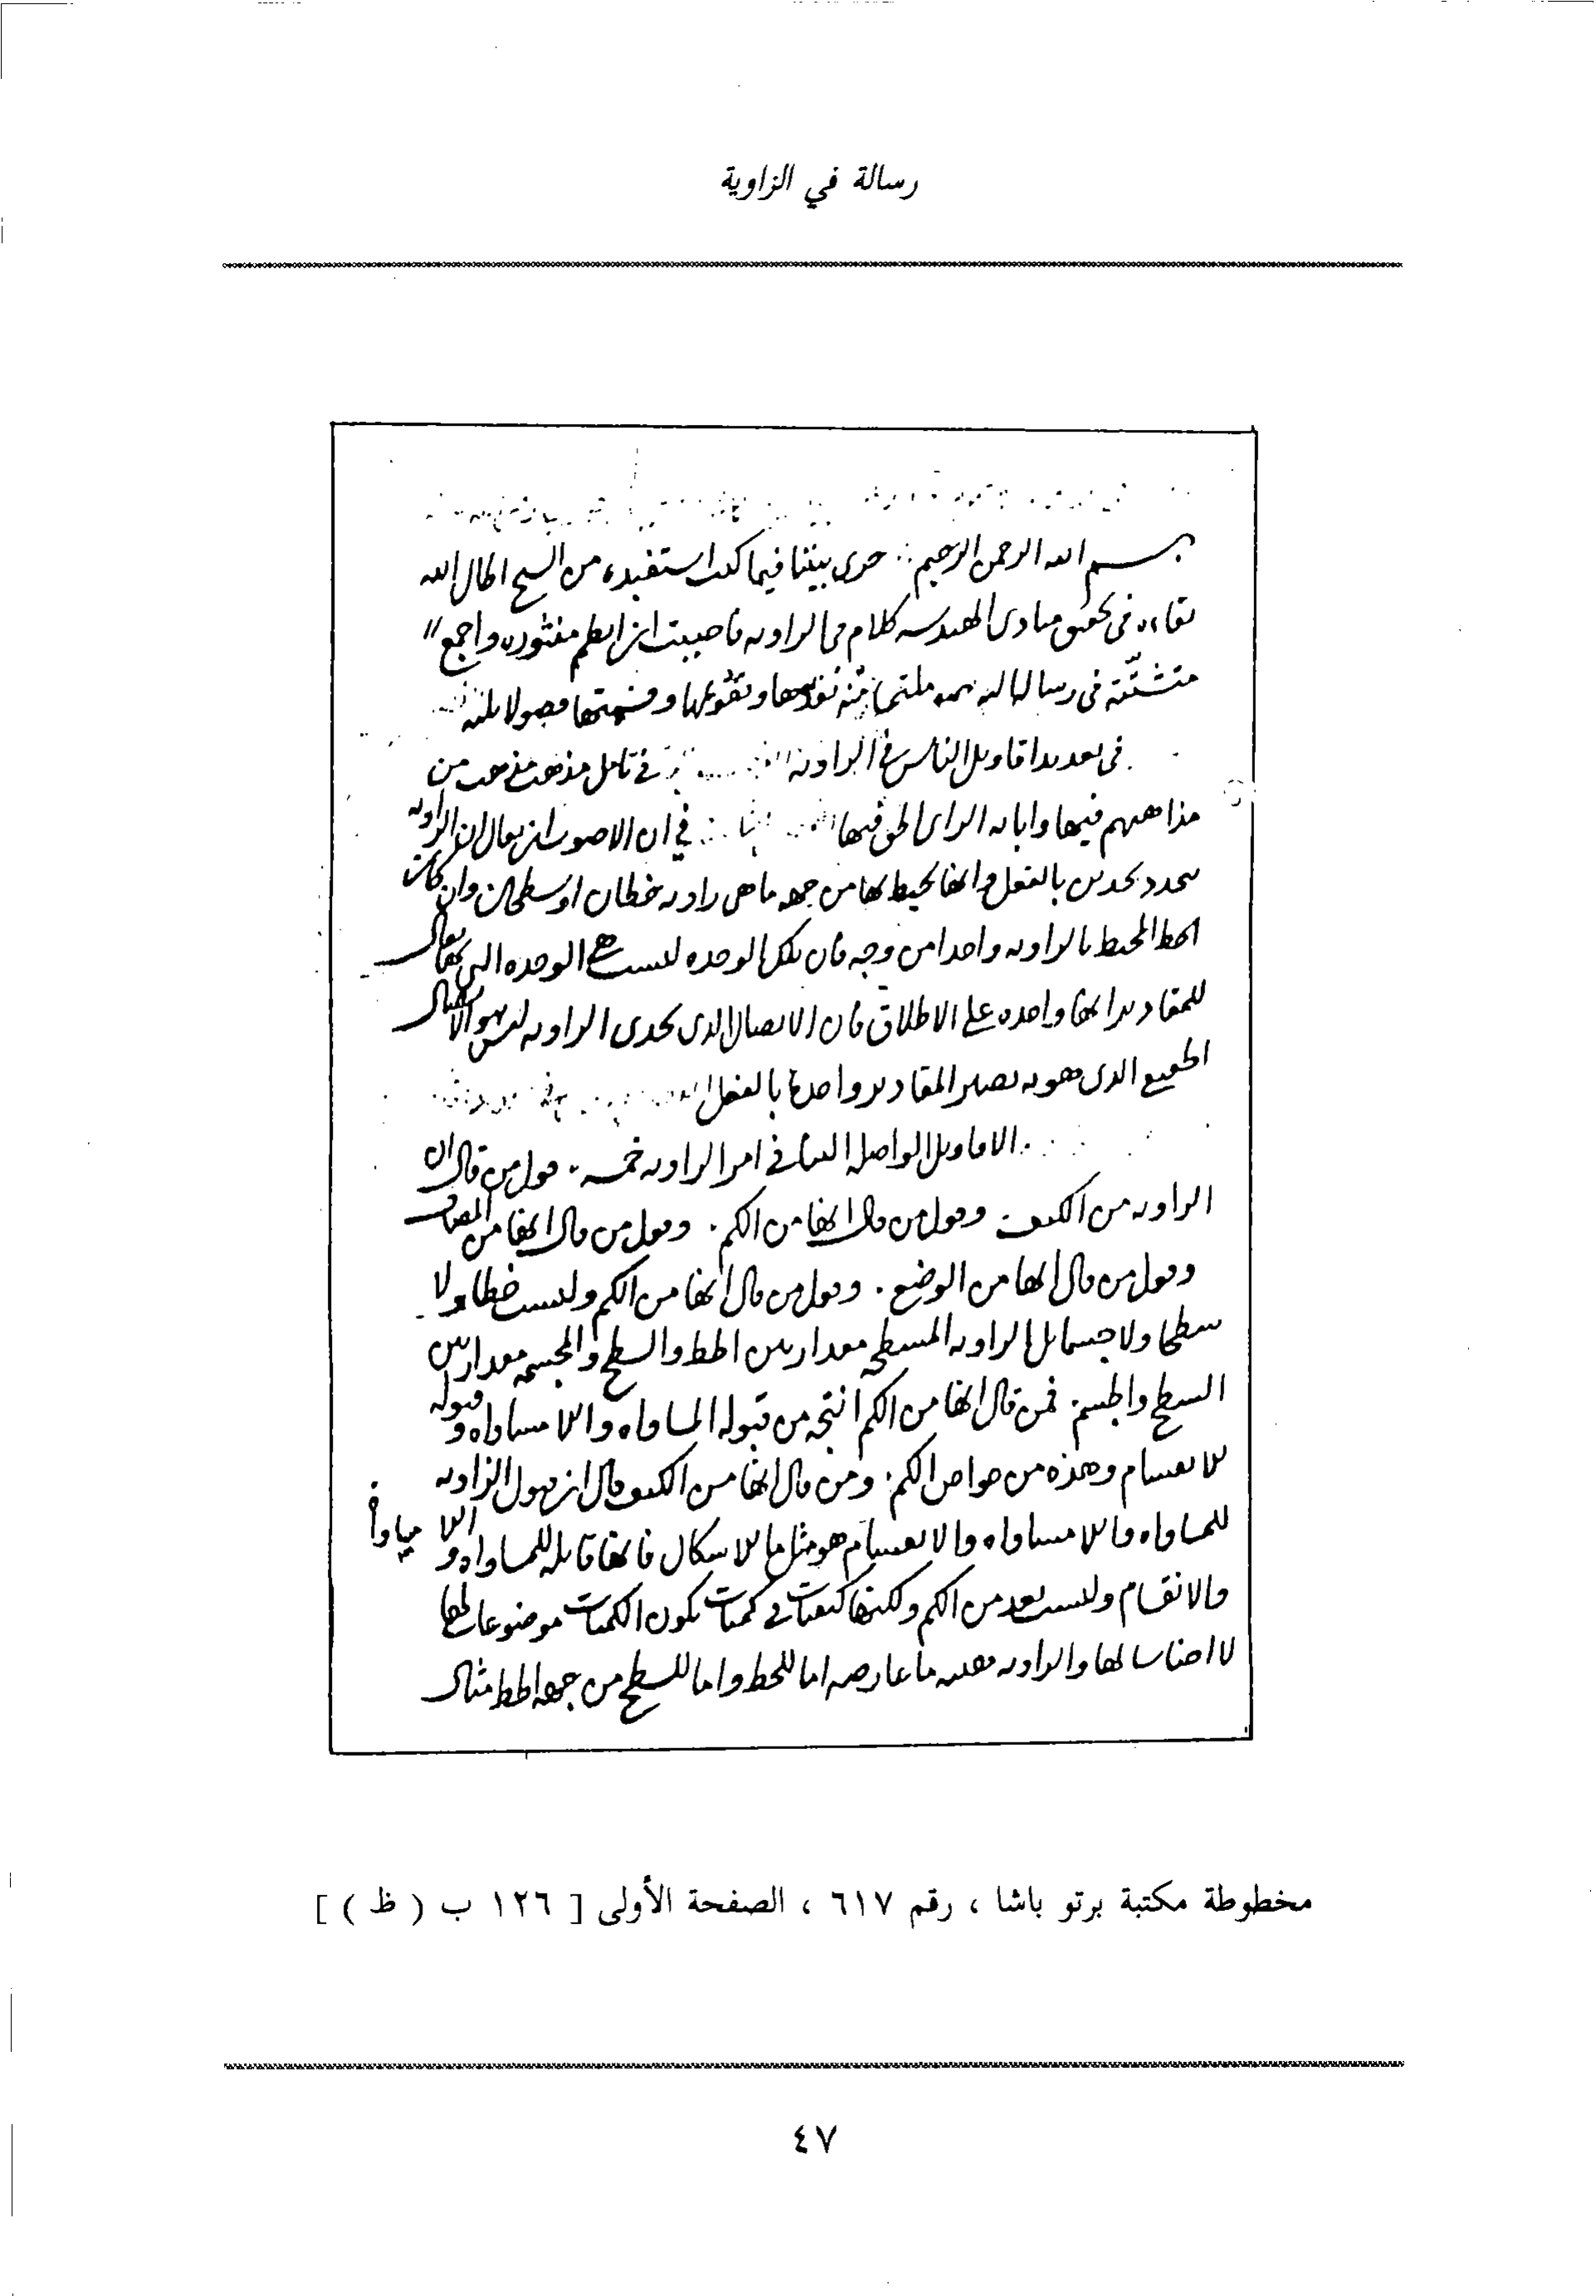 رسالة في الزاوية
بسم الله الرحمن الرحيم جرى بيننا فيما كنت استفيده من الشيخ اطال الله
بقاءه في تحقيق مبادى الهندسه كلام في الزاويه فاحببت ان انظم منثوره واجمع
متشتته في رسالة اليه ملتمسا منه وتقويمها وقسمتها فصولا ثلثه
في تعديد اقاويل الناس في الزاويه في تامل مذهب مذهب من
مذاهبهم فيها وابانه الراى الحق فيها في ان الاصوب ان يقال ان الزاويه
تتحدد بحدين بالفعل وانها يحيط بها من جهه ما هى زاويه خطان او سطحان وان كان
الخط المحيط بالزاويه واحدا من وجه فان تلك الوحده ليست هى الوحده التي بها يقال
للمقادير انها واحده على الاطلاق فان الاتصال الذى بحدى الزاويه ليس هو الاتصال
الحقيقى الذى هو به تصير المقادير واحدة بالفعل
الاقاويل الواصله الينا في امر الزاويه خمسه قول من قال ان
الزاويه من الكيف وقول من قال انها من الكم وقول من قال انها من المضاف
وقول من قال انها من الوضع وقول من قال انها من الكم وليست خطا ولا
سطحا ولا جسما بل الزاويه المسطحه مقدار بين الخط والسطح والمجسمه مقدار بين
السطح والجسم فمن قال انها من الكم انتجه من قبوله المساواه واللا مساواه وقبوله
للانقسام وهذه من خواص الكم ومن قال انها من الكيف قال ان قبول الزاويه
للمساواه واللا مساواه والانقسام هو مثل ما للاشكال فانها قابله للمساواه واللا مساواة
والانقسام وليست بعد من الكم ولكنها كيفيات في كميات تكون الكميات موضوعات لها
لا اجناسا لها والزاويه هيئه ما عارضه اما للخط واما للسطح من جهه الخط مثال
مخطوطة مكتبة برتو باشا ، رقم ٦١٧ ، الصفحة الأولى [ ١٢٦ ب ( ظ ) ]
٤٧